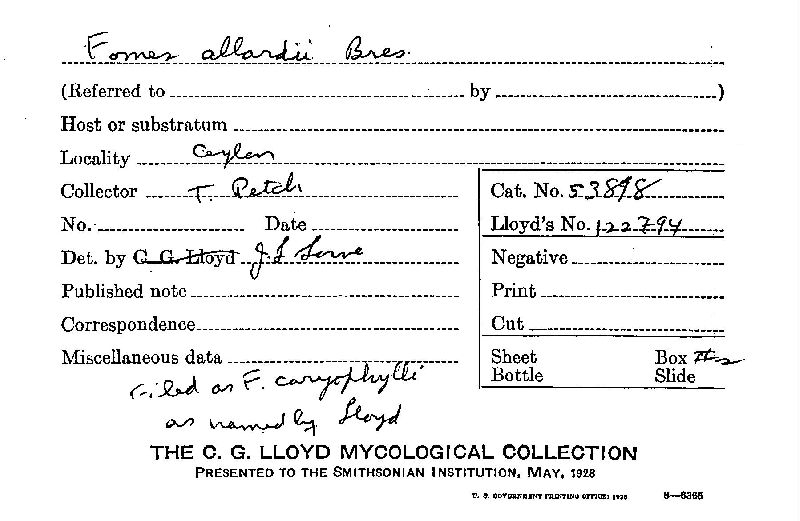 Fomes allardii Bres.
(Referred to by )
Host or substratum
Locality Ceylon
Collector T. Petch
No. Date
Det. by C. G. Lloyd J L Lowe
Published note
Correspondence
Miscellaneous data
Filed as F. caryophylli
as named by Lloyd
Cat. No. 53898
Lloyd's No. 122794
Negative
Print
Cut
Sheet Box
Bottle Slide
THE C. G. LLOYD MYCOLOGICAL COLLECTION
PRESENTED TO THE SMITHSONIAN INSTITUTION, MAY, 1928
U. S. GOVERNMENT PRINTING OFFICE: 1928 8—6365